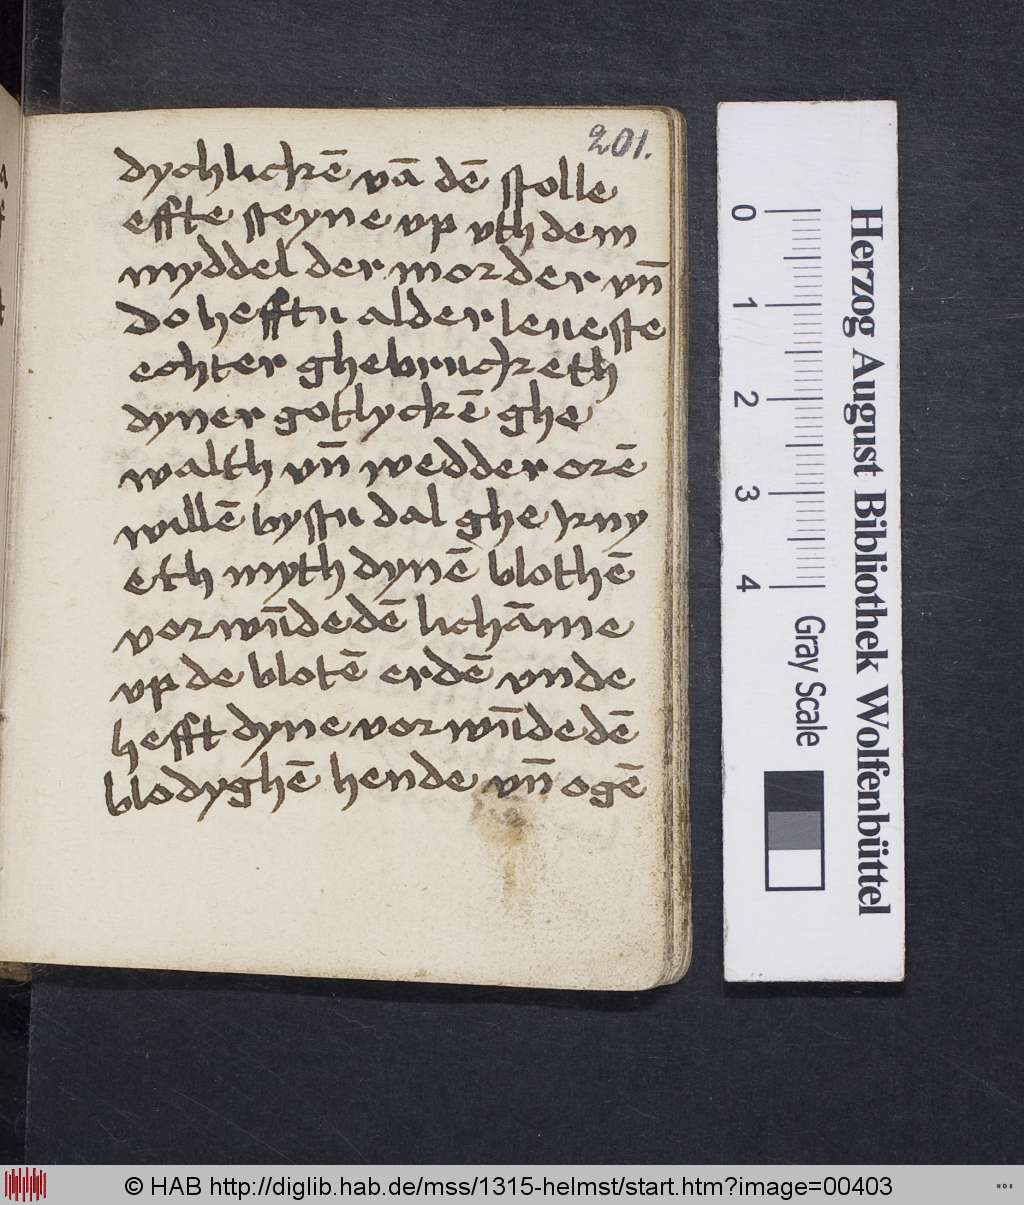 201.
dychlickē vā dē stolle
effte steyne vp vth dem
myddel der morder vn̄
do hefftu alder leueste
echter ghebrucketh
dyner gotlyckē ghe
walth vn̄ wedder orē
willē bystu dal ghe kny
eth myth dynē blothē
vorwn̄dedē lichāme
vp de blotē erdē vnde
hefft dyne vorwn̄dedē
blodyghē hende vn̄ ogē
0 1 2 3 4
Gray Scale
Herzog August Bibliothek Wolfenbüttel
© HAB http://diglib.hab.de/mss/1315-helmst/start.htm?image=00403